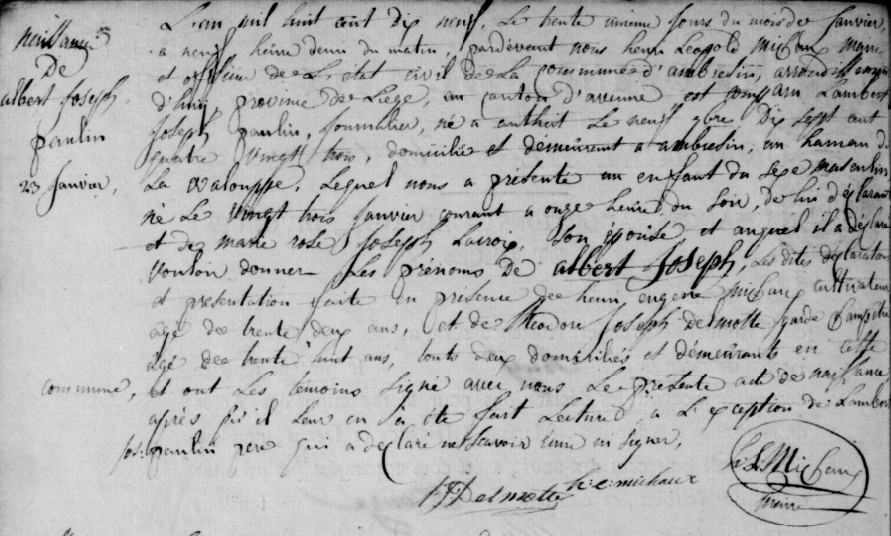 naissance
De
albert Joseph
paulin
23 janvier,
L'an mil huit cent Dix neuf, Le trente unieme jours du mois de Janvier,
a neuf heure demi du matin, pardevent nous henri Leopold michaux maire
et officier de L'etat civil de La commune d'ambresin, arrondissement
d'huy, province de Liege, en canton d'avenne est comparu Lambert
Joseph paulin, journalier, né a antheit Le neuf 9bre Dix sept cent
quatre vingt trois, domicilié et demeurent a ambresin, en hameau de
La Waloppe, Lequel nous a présenté un enfant du sexe masculin
né Le vingt trois janvier courant a onze heure du soir, de lui déclarant
et de marie rose Joseph Lacroix, son épouse et auquel il a déclaré
vouloir donner Les prénoms De albert Joseph, Les dites déclaration
et presentation faite en présence de henri eugene michaux cultivateur
âgé de trente deux ans, et de theodore Joseph de motte garde champêtre
âgé de trente huit ans, touts deux domiciliés et démeurants en cette
commune, et ont Les témoins signé avec nous Le présente act de naissance
après qu'il leur en a été fait Lecture a L'exception de Lambert
jos: paulin pere qui a déclaré ne scavoir ecrire ni signer,
T J Desmotte h: e: michaux
h: L: Michaux
maire